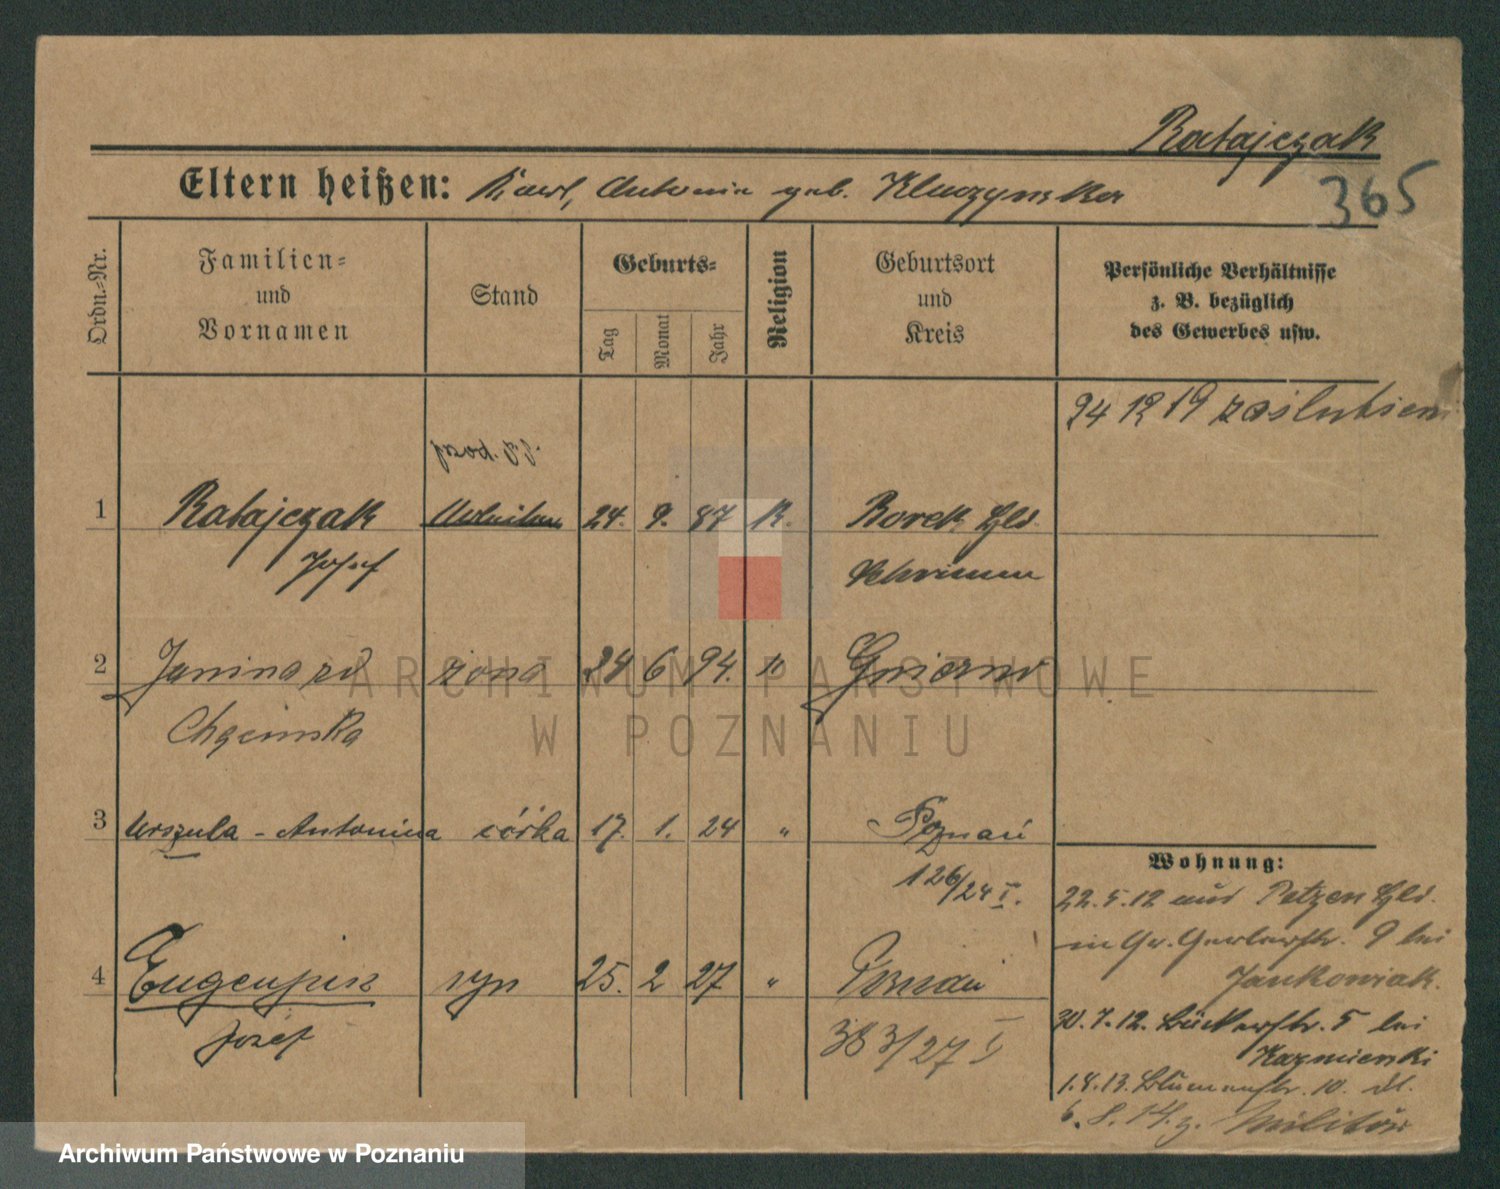 Ratajczak
365
Eltern heißen: Karl, Antonie geb. Kluczynska
Ordn.-Nr.
Familien-
und
Vornamen
Stand
Geburts-
Tag
Monat
Jahr
Religion
Geburtsort
und
Kreis
Persönliche Verhältnisse
z. B. bezüglich
des Gewerbes usw.
24 12 19 zaślubieni
1 Ratajczak 24. 9. 87 K. Borek Hld.
Josef Schrimm
2 Janina zd żona 24 6 94. " Gniezno
Chęcińska
3 Urszula - Antonina córka 17. 1. 24 " Poznań
126/24 I.
4 Eugenjusz syn 25. 2 27 " Poznań
Józef 383/27 I
Wohnung:
22.5.12 aus Petzen Hld.
in Gr. Gerberstr. 9 bei
Jankowiak.
30.7.12. Bäckerstr. 5 bei
Kazmierski
1.8.13. Blumenstr. 10.
6.8.14. z. Militär
ARCHIWUM PAŃSTWOWE
W POZNANIU
Archiwum Państwowe w Poznaniu